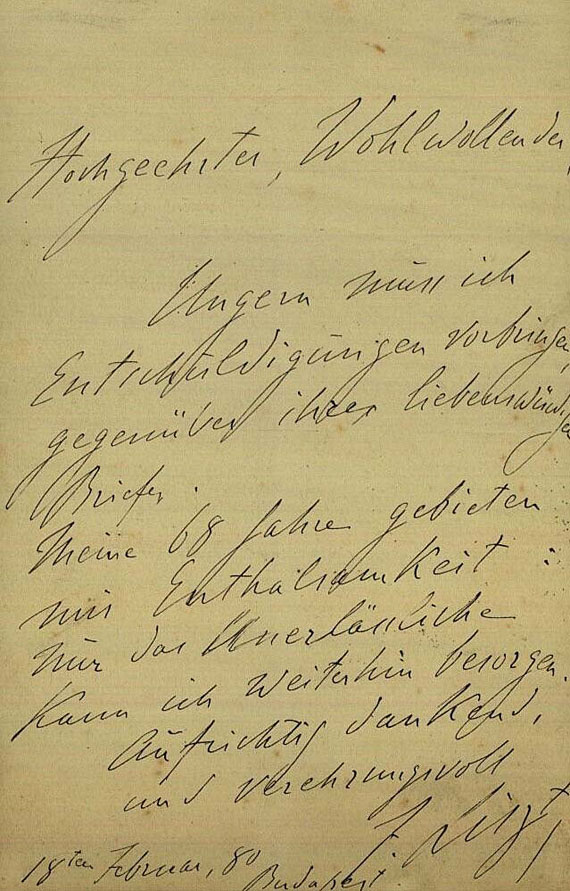 Hochgeehrter, Wohlwollender,
Ungern muss ich
Entschuldigungen vorbringen,
gegenüber ihres liebenswürdigen
Briefes.
Meine 68 Jahre gebieten
mir Enthaltsamkeit :
nur das Unerlässliche
kann ich weiterhin besorgen.
Aufrichtig dankend,
und verehrungsvoll
F. Liszt
18ten Februar, 80
Budapest.